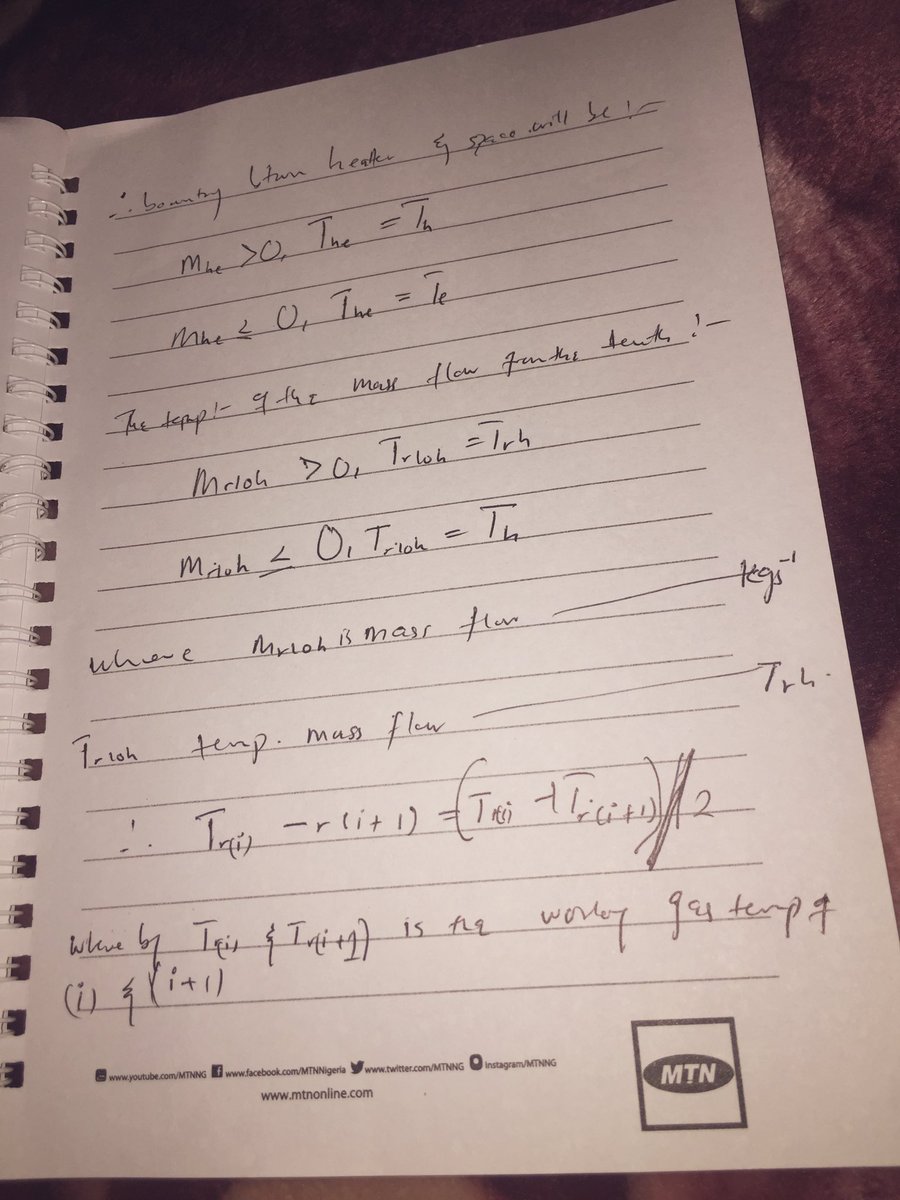 ∴ bountry btwn heater & space will be :-
Mhe >0, The = Th
Mhe ≤ 0, The = Te
The temp :- of the mass flow from the tenth :-
Mr10h > 0, Tr10h = Trh
Mr10h ≤ 0, Tr10h = Th
Where Mr10h is mass flow kgs⁻¹
Tr10h temp. mass flow Trh.
∴ Tr(i) - r(i+1) = (Tr(i) + Tr(i+1)) / 2
Where by Tr(i) & Tr(i+1) is the gas temp of
(i) & (i+1)
www.youtube.com/MTNNG www.facebook.com/MTNNigeria www.twitter.com/MTNNG instagram/MTNNG
www.mtnonline.com
MTN